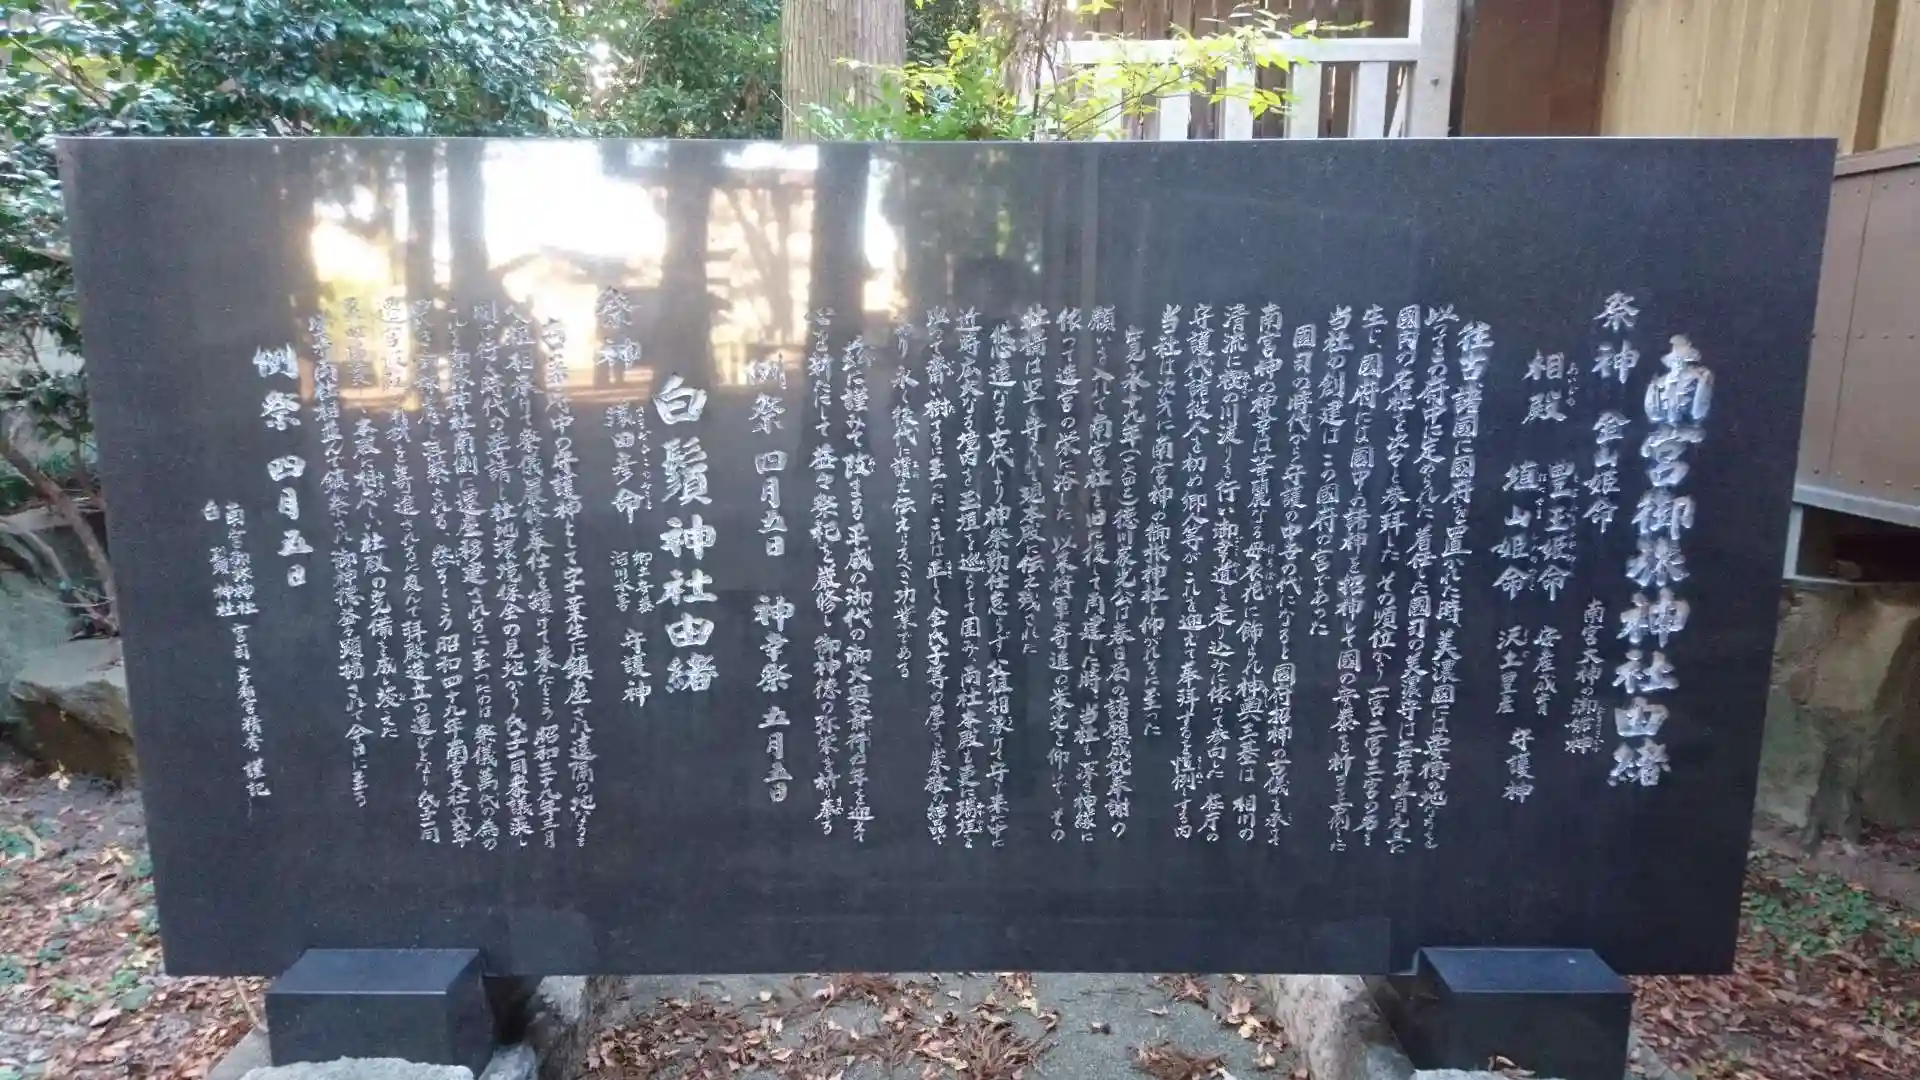 南宮御旅神社由緒
祭神 金山姫命 南宮大神の御姉神
相殿 豊玉姫命 安産成育
埴山姫命 沃土豊産 守護神
往古諸國に國府を置かれた時 美濃國には要衝の地なるを
以てこの府中に定められた 着任した國司の美濃守は 年 月元旦に
國内の名社を次々と参拝した その順位から一宮二宮三宮の名を
生じ 國府には國中の諸神を招神して國の安泰を祈り
当社の創建はこの國府の宮であった
國司の時代から守護の中古の代になると國府招神の古儀を承て
南宮神の神幸は華麗なる母衣花に飾られ神輿三基は 相川の
清流に禊の川渡りを行い御幸道を走り込みに依って参向した 在庁の
守護代諸役人を初め郷人等がこれを迎えて奉拝するを慣例する内
当社は次才に南宮神の御旅神社と仰がれるに至った
寛永十九年 徳川家光公は春日局の諸願成就奉謝の
願いを入れて南宮社を旧に復して再建した時 当社も深き神縁に
依って造宮の栄に浴した 以来将軍寄進の栄光を仰いで その
社譜は里人等しく 現本殿に伝え残された
悠遠なる古代より神祭勤仕怠らず 父祖相承けり守り来た中に
近時広大なる境内を玉垣を巡らして囲み 両社本殿も更に瑞垣を
以って齋い樹するに至った これは正しく全氏子等の厚き崇敬の結晶で
あり永く後代に讃え伝えらるべき功業である
茲に謹みて改まる平成の御代の御大典斎行の年を迎えて
心も新たにして 益々祭祀を厳修し御神徳の弥栄を祈り奉る
例祭 四月五日 神幸祭 五月五日
白鬚神社由緒
祭神 猿田彦命 郷土奇益 沼川水害 守護神
古来府中の守護神として字葉生に鎮座され遠隔の地なるを
父祖相承けて祭儀厳修奉仕を続けて来たところ 昭和三九年三月
國司の時代の要請し社地環境保全の見地から氏子一同衆議決し
御旅神社南側に遷座移建されるに至ったのは祭儀萬代の為の
昭和四十九年南宮大社
遷宮 を寄進されるに及んで拝殿造立の運びとなり氏子一同
本殿に相応しい社殿の完備を成し終えた
両社相並んで鎮祭され 御神徳益々顕揚されて今日に至る
例祭 四月五日
南宮御旅神社
白鬚神社 宮司 宇都宮精秀 謹記